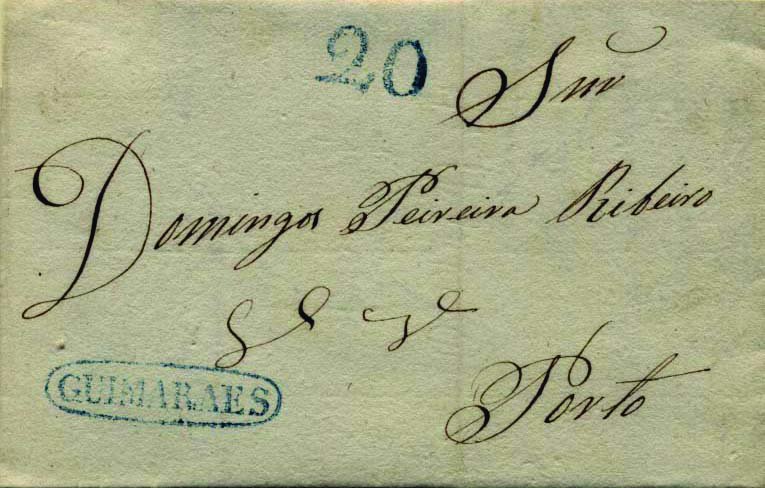 20
Snr
Domingos Pereira Ribeiro
Porto
GUIMARAES